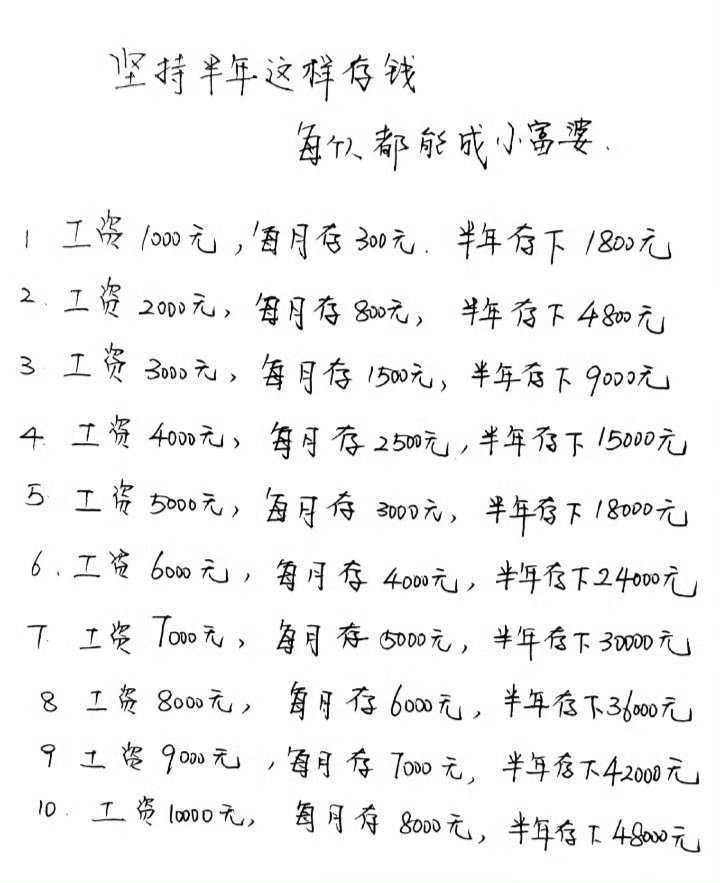 坚持半年这样存钱
每个人都能成小富婆.
1 工资1000元,每月存300元.半年存下1800元
2.工资2000元,每月存800元,半年存下4800元
3 工资3000元,每月存1500元,半年存下9000元
4.工资4000元,每月存2500元,半年存下15000元
5 工资5000元,每月存3000元,半年存下18000元
6.工资6000元,每月存4000元,半年存下24000元
7.工资7000元,每月存5000元,半年存下30000元
8 工资8000元,每月存6000元,半年存下36000元
9 工资9000元,每月存7000元,半年存下42000元
10.工资10000元,每月存8000元,半年存下48000元